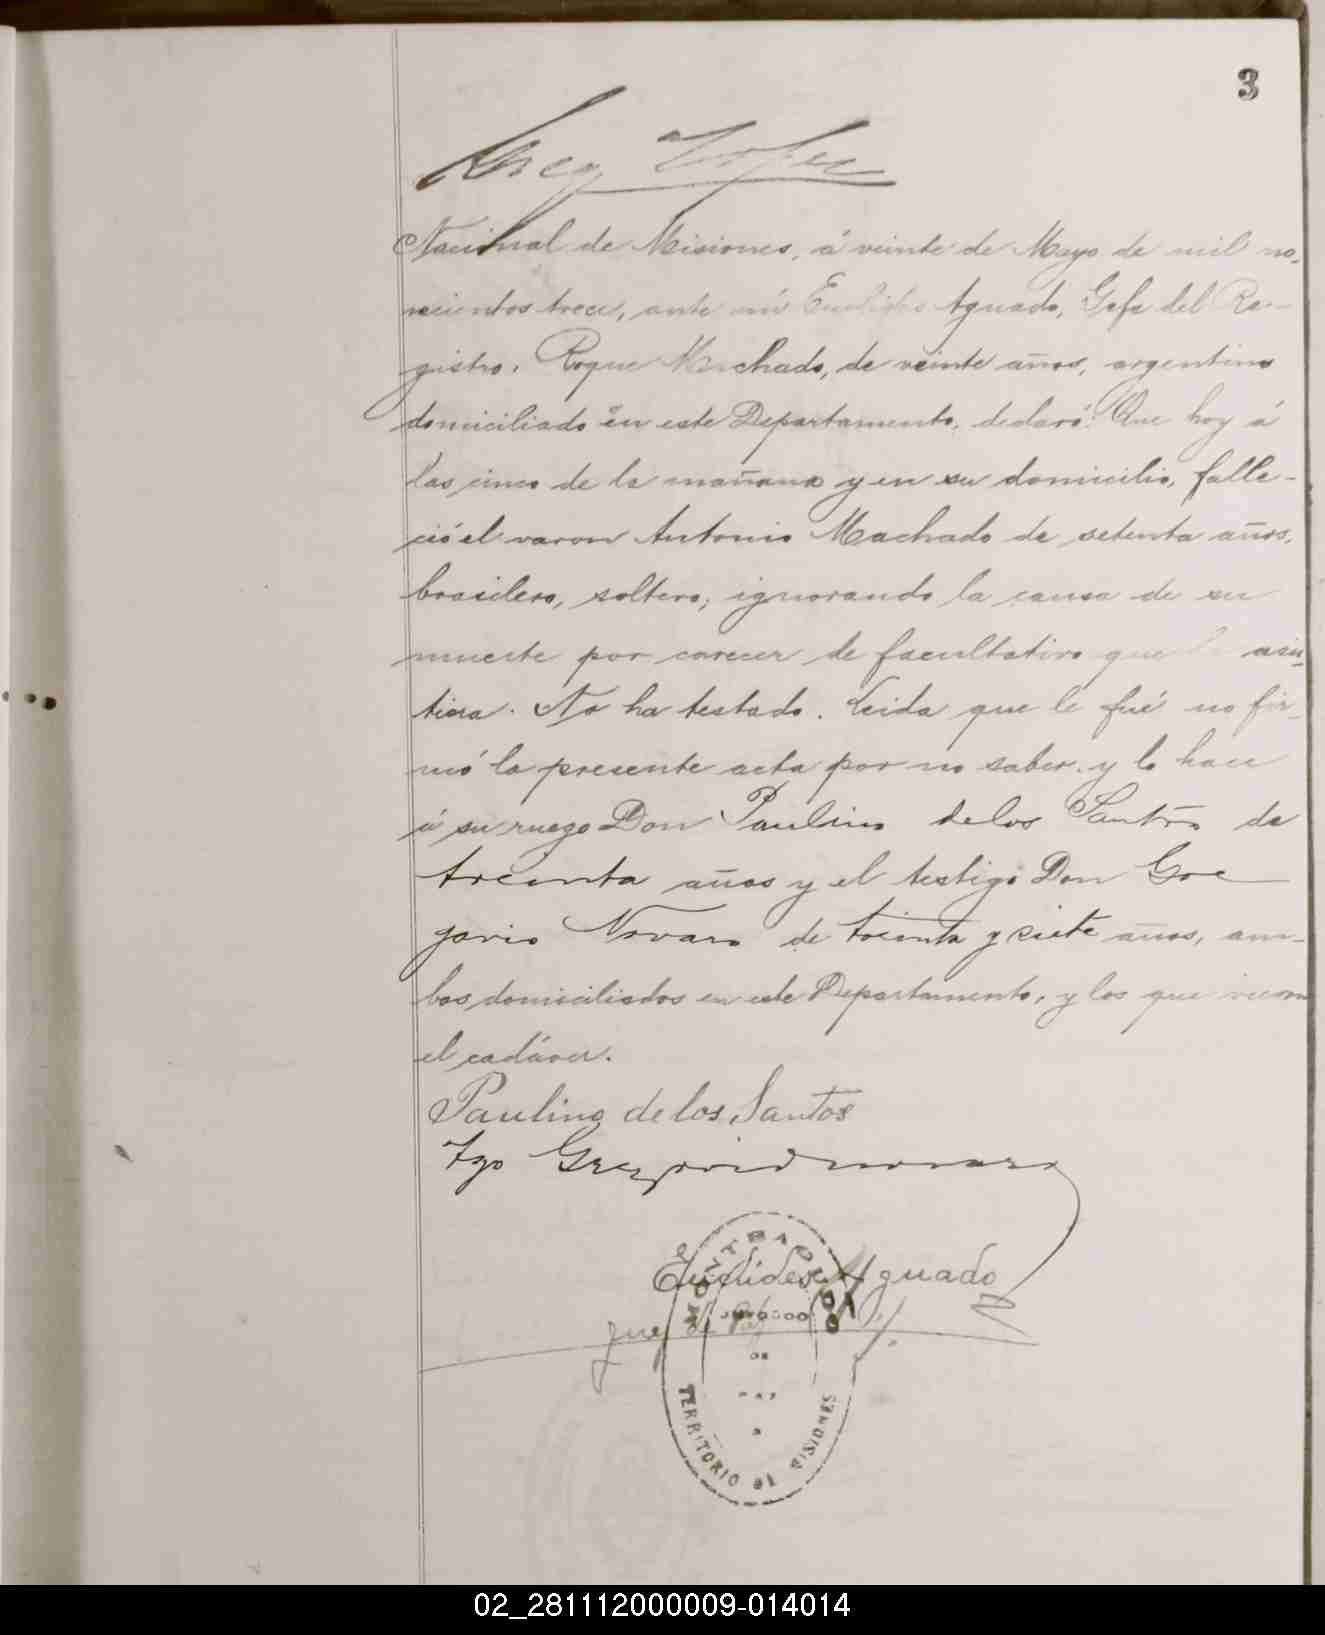 3
Nacional de Misiones, á veinte de Mayo de mil no-
vecientos trece, ante mí Euclides Aguado, Gefe del Re-
gistro, Roque Machado, de veinte años, argentino
domiciliado en este Departamento, declaró: Que hoy á
las cinco de la mañana y en su domicilio, falle-
ció el varon Antonio Machado de setenta años,
brasilero, soltero; ignorando la causa de su
muerte por carecer de facultativo que le asis-
tiera. No ha testado. Leida que le fué no fir-
mó la presente acta por no saber y lo hace
á su ruego Don Paulino de los Santos de
treinta años y el testigo Don Gre
gorio Novaro de treinta y siete años, am-
bos domiciliados en este Departamento, y los que vieron
el cadáver.
Paulino de los Santos
Tgo Gregorio novaro
Euclides Aguado
Juez de Paz
TERRITORIO DE MISIONES
02_281112000009-014014